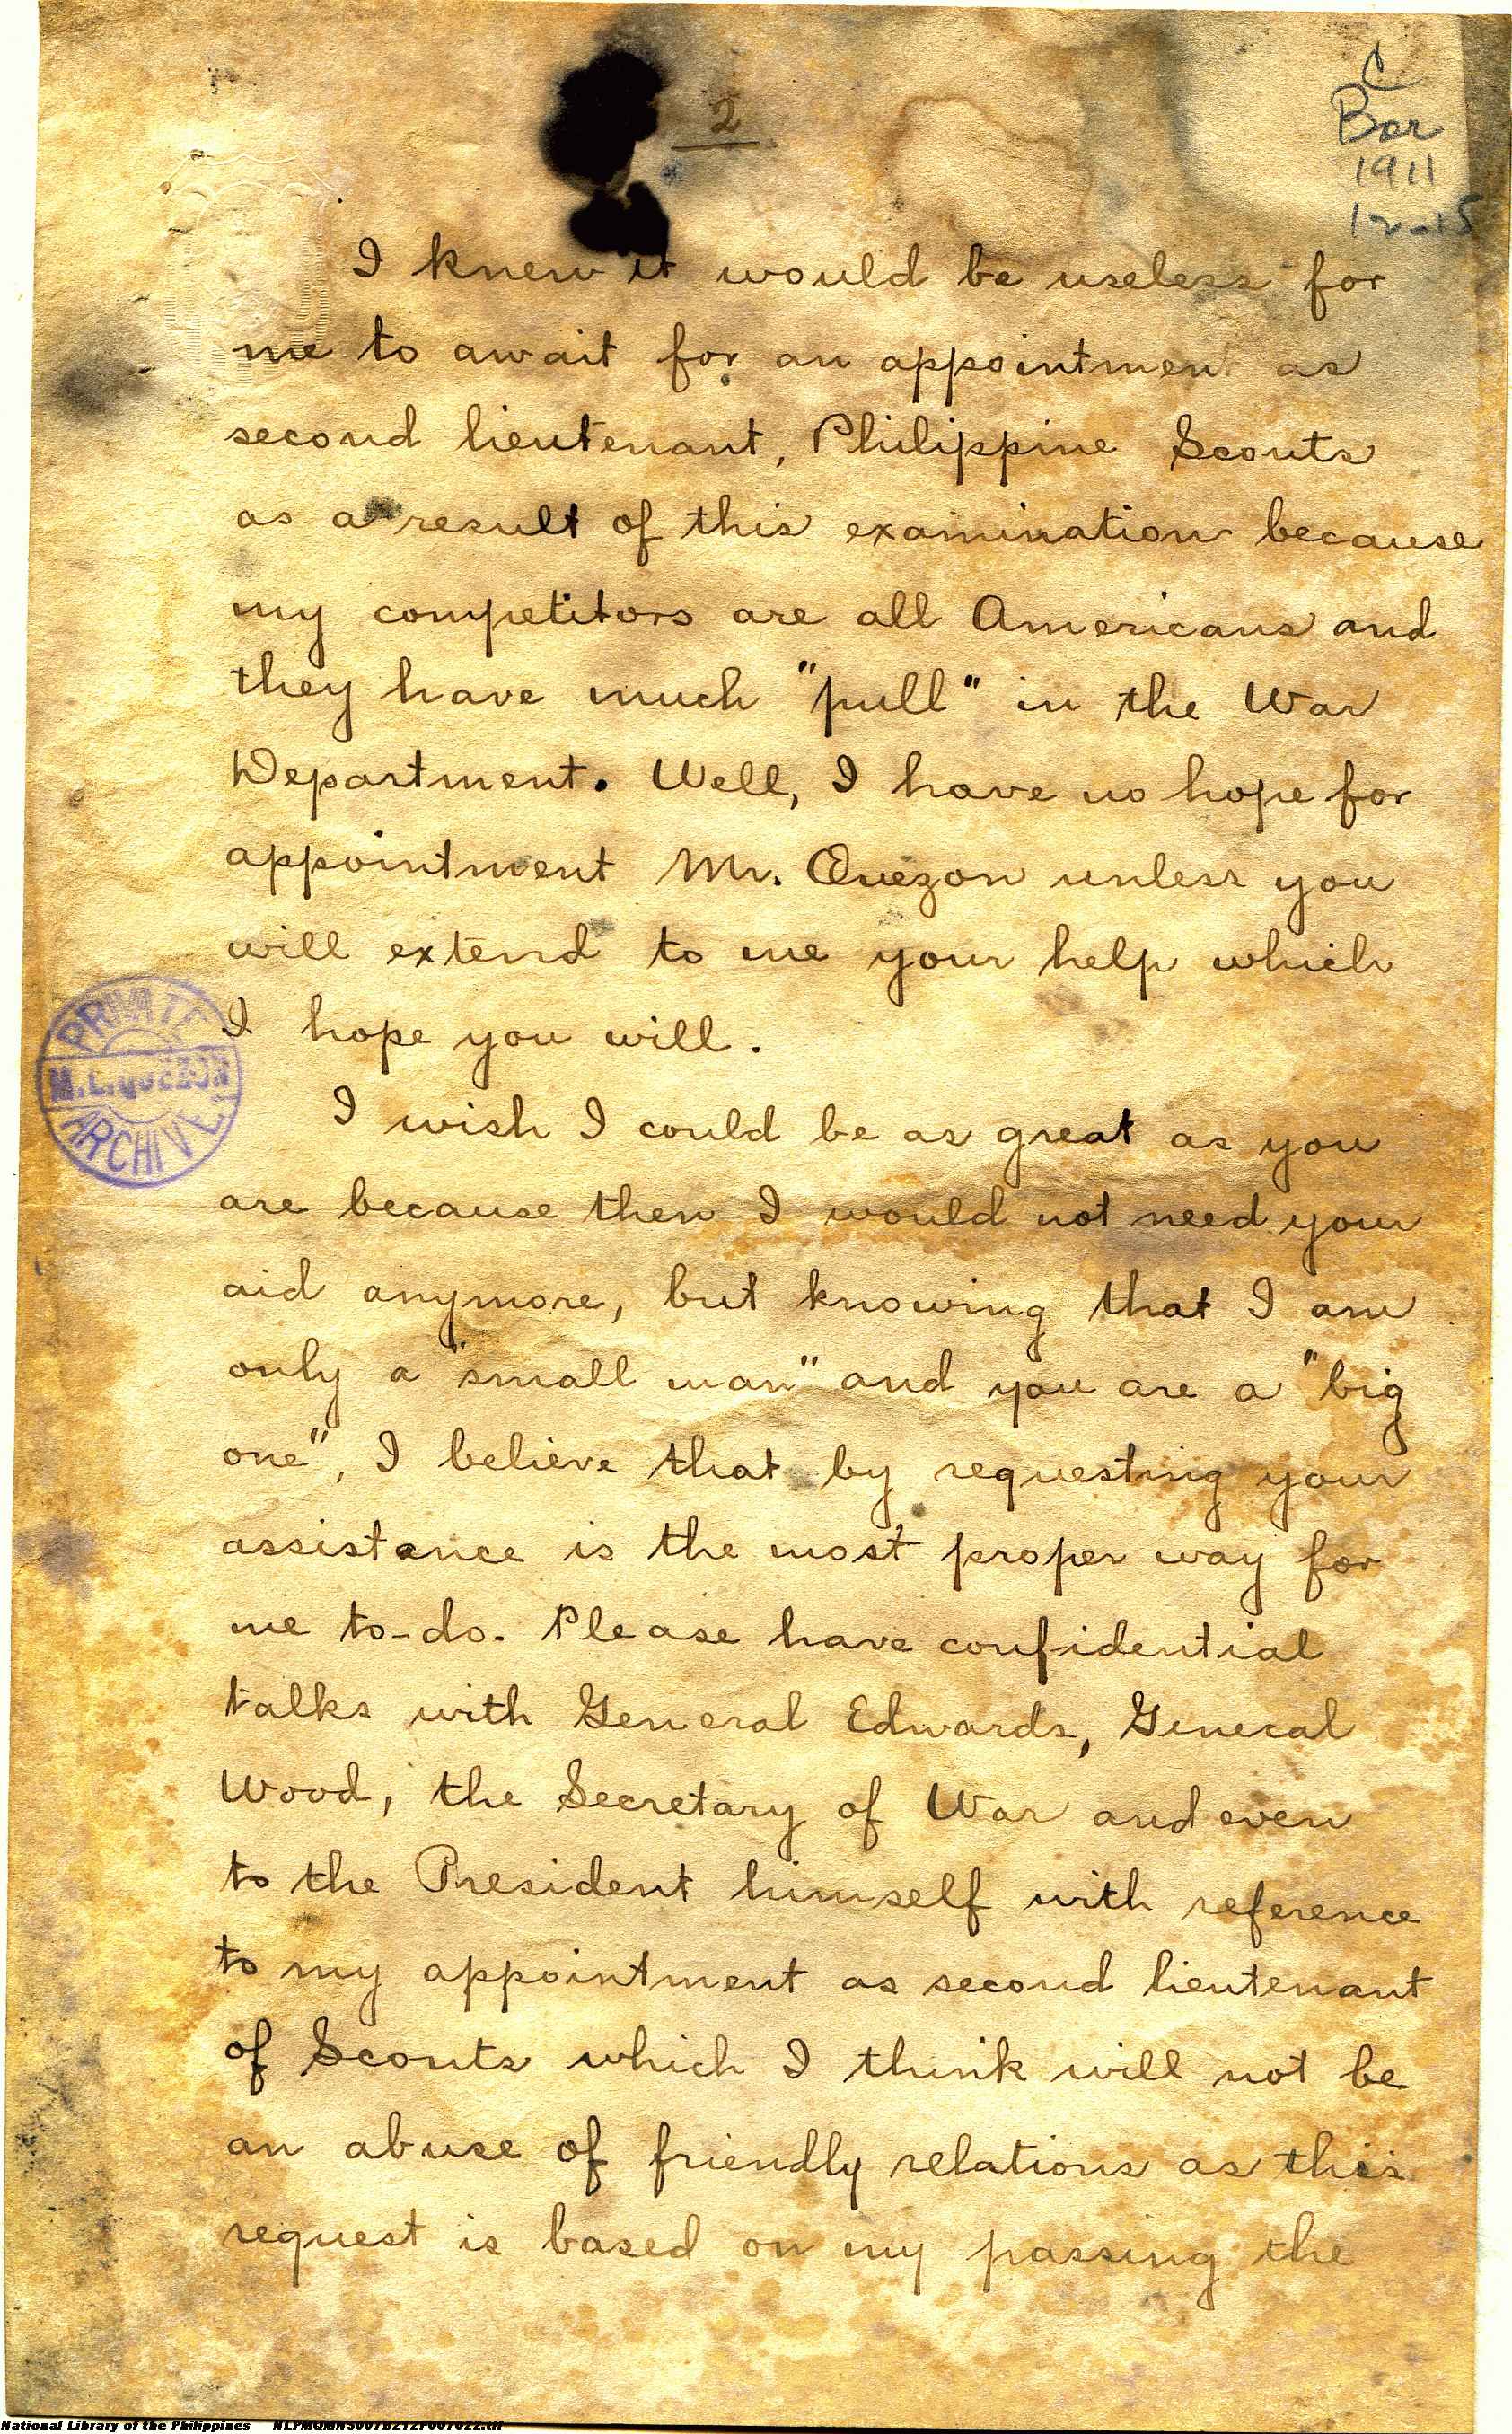 2
C
Bor
1911
12-15
I knew it would be useless for
me to await for an appointment as
second lieutenant, Philippine Scouts
as a result of this examination because
my competitors are all Americans and
they have much "pull" in the War
Department. Well, I have no hope for
appointment Mr. Quezon unless you
will extend to me your help which
I hope you will.
PRIVATE
M.L.QUEZON
ARCHIVE
I wish I could be as great as you
are because then I would not need your
aid anymore, but knowing that I am
only a "small man" and you are a "big
one", I believe that by requesting your
assistance is the most proper way for
me to-do. Please have confidential
talks with General Edwards, General
Wood, the Secretary of War and even
to the President himself with reference
to my appointment as second lieutenant
of Scouts which I think will not be
an abuse of friendly relations as this
request is based on my passing the
National Library of the Philippines